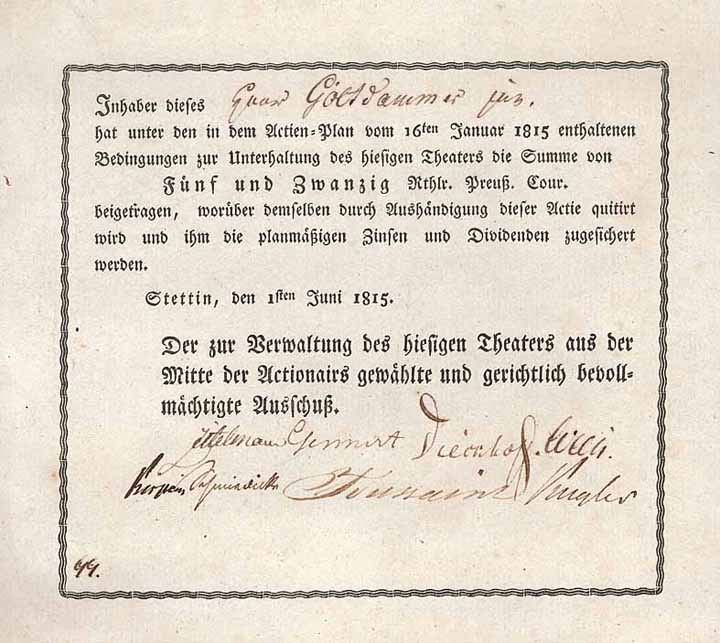 Inhaber dieses Goltdammer jun.
hat unter den in dem Actien-Plan vom 16ten Januar 1815 enthaltenen
Bedingungen zur Unterhaltung des hiesigen Theaters die Summe von
Fünf und Zwanzig Rthlr. Preuß. Cour.
beigetragen, worüber demselben durch Aushändigung dieser Actie quitirt
wird und ihm die planmäßigen Zinsen und Dividenden zugesichert
werden.
Stettin, den 1sten Juni 1815.
Der zur Verwaltung des hiesigen Theaters aus der
Mitte der Actionairs gewählte und gerichtlich bevoll-
mächtigte Ausschuß.
Dieckhoff.
Toussaint Kugler
99.